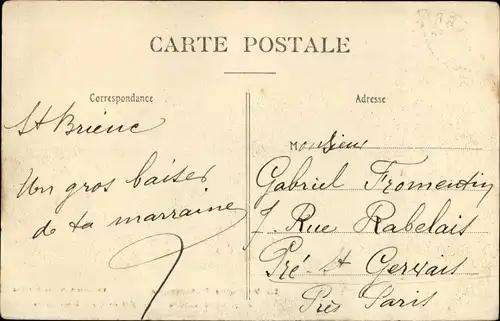 CARTE POSTALE
Correspondance
Adresse
St Brieuc
Un gros baiser
de ta marraine
Monsieur
Gabriel Fromentin
7. Rue Rabelais
Pré-St Gervais
Près Paris